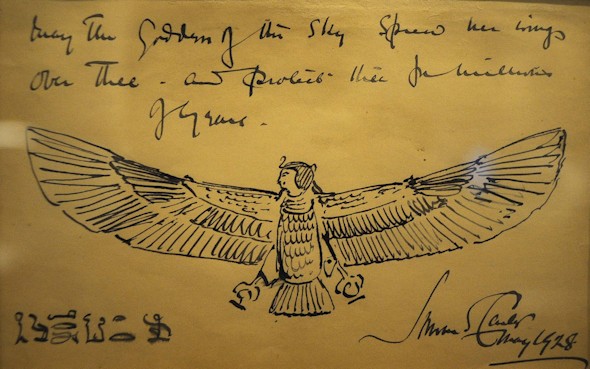 May The Goddess of the Sky Spread her wings
over Thee - and protect thee for millions
of years.
Howard Carter
May 1928